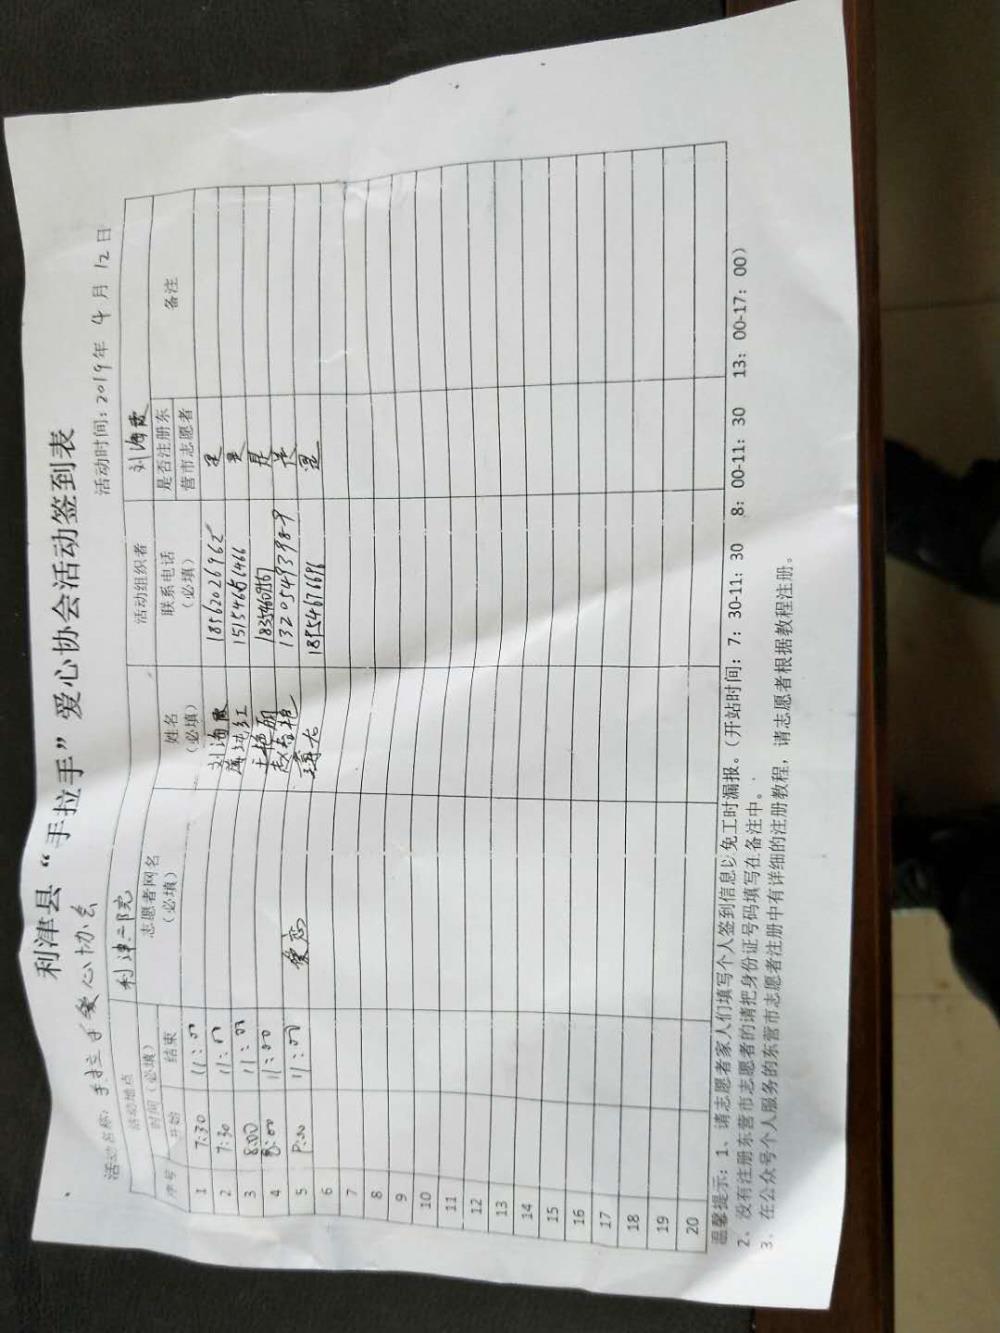 利津县“手拉手”爱心协会活动签到表
活动名称：手拉手爱心协会 活动时间：2019年 4 月 12 日
活动地点 利津二院 活动组织者 刘海霞
序号 时间（必填） 志愿者网名（必填） 姓名（必填） 联系电话（必填） 是否注册东营市志愿者 备注
开始 结束
1 7:30 11:00 刘海霞 18562026962 是
2 7:30 11:00 15154651466 是
3 8:00 11:00 是
4 8:00 11:00 13205493989 是
5 8:00 11:00 爱恋 18954671696 是
6
7
8
9
10
11
12
13
14
15
16
17
18
19
20
温馨提示：1、请志愿者家人们填写个人签到信息以免工时漏报。（开站时间：7：30-11：30 8：00-11：30 13：00-17：00）
2、没有注册东营市志愿者的请把身份证号码填写在备注中。
3、在公众号个人服务的东营市志愿者注册中有详细的注册教程，请志愿者根据教程注册。